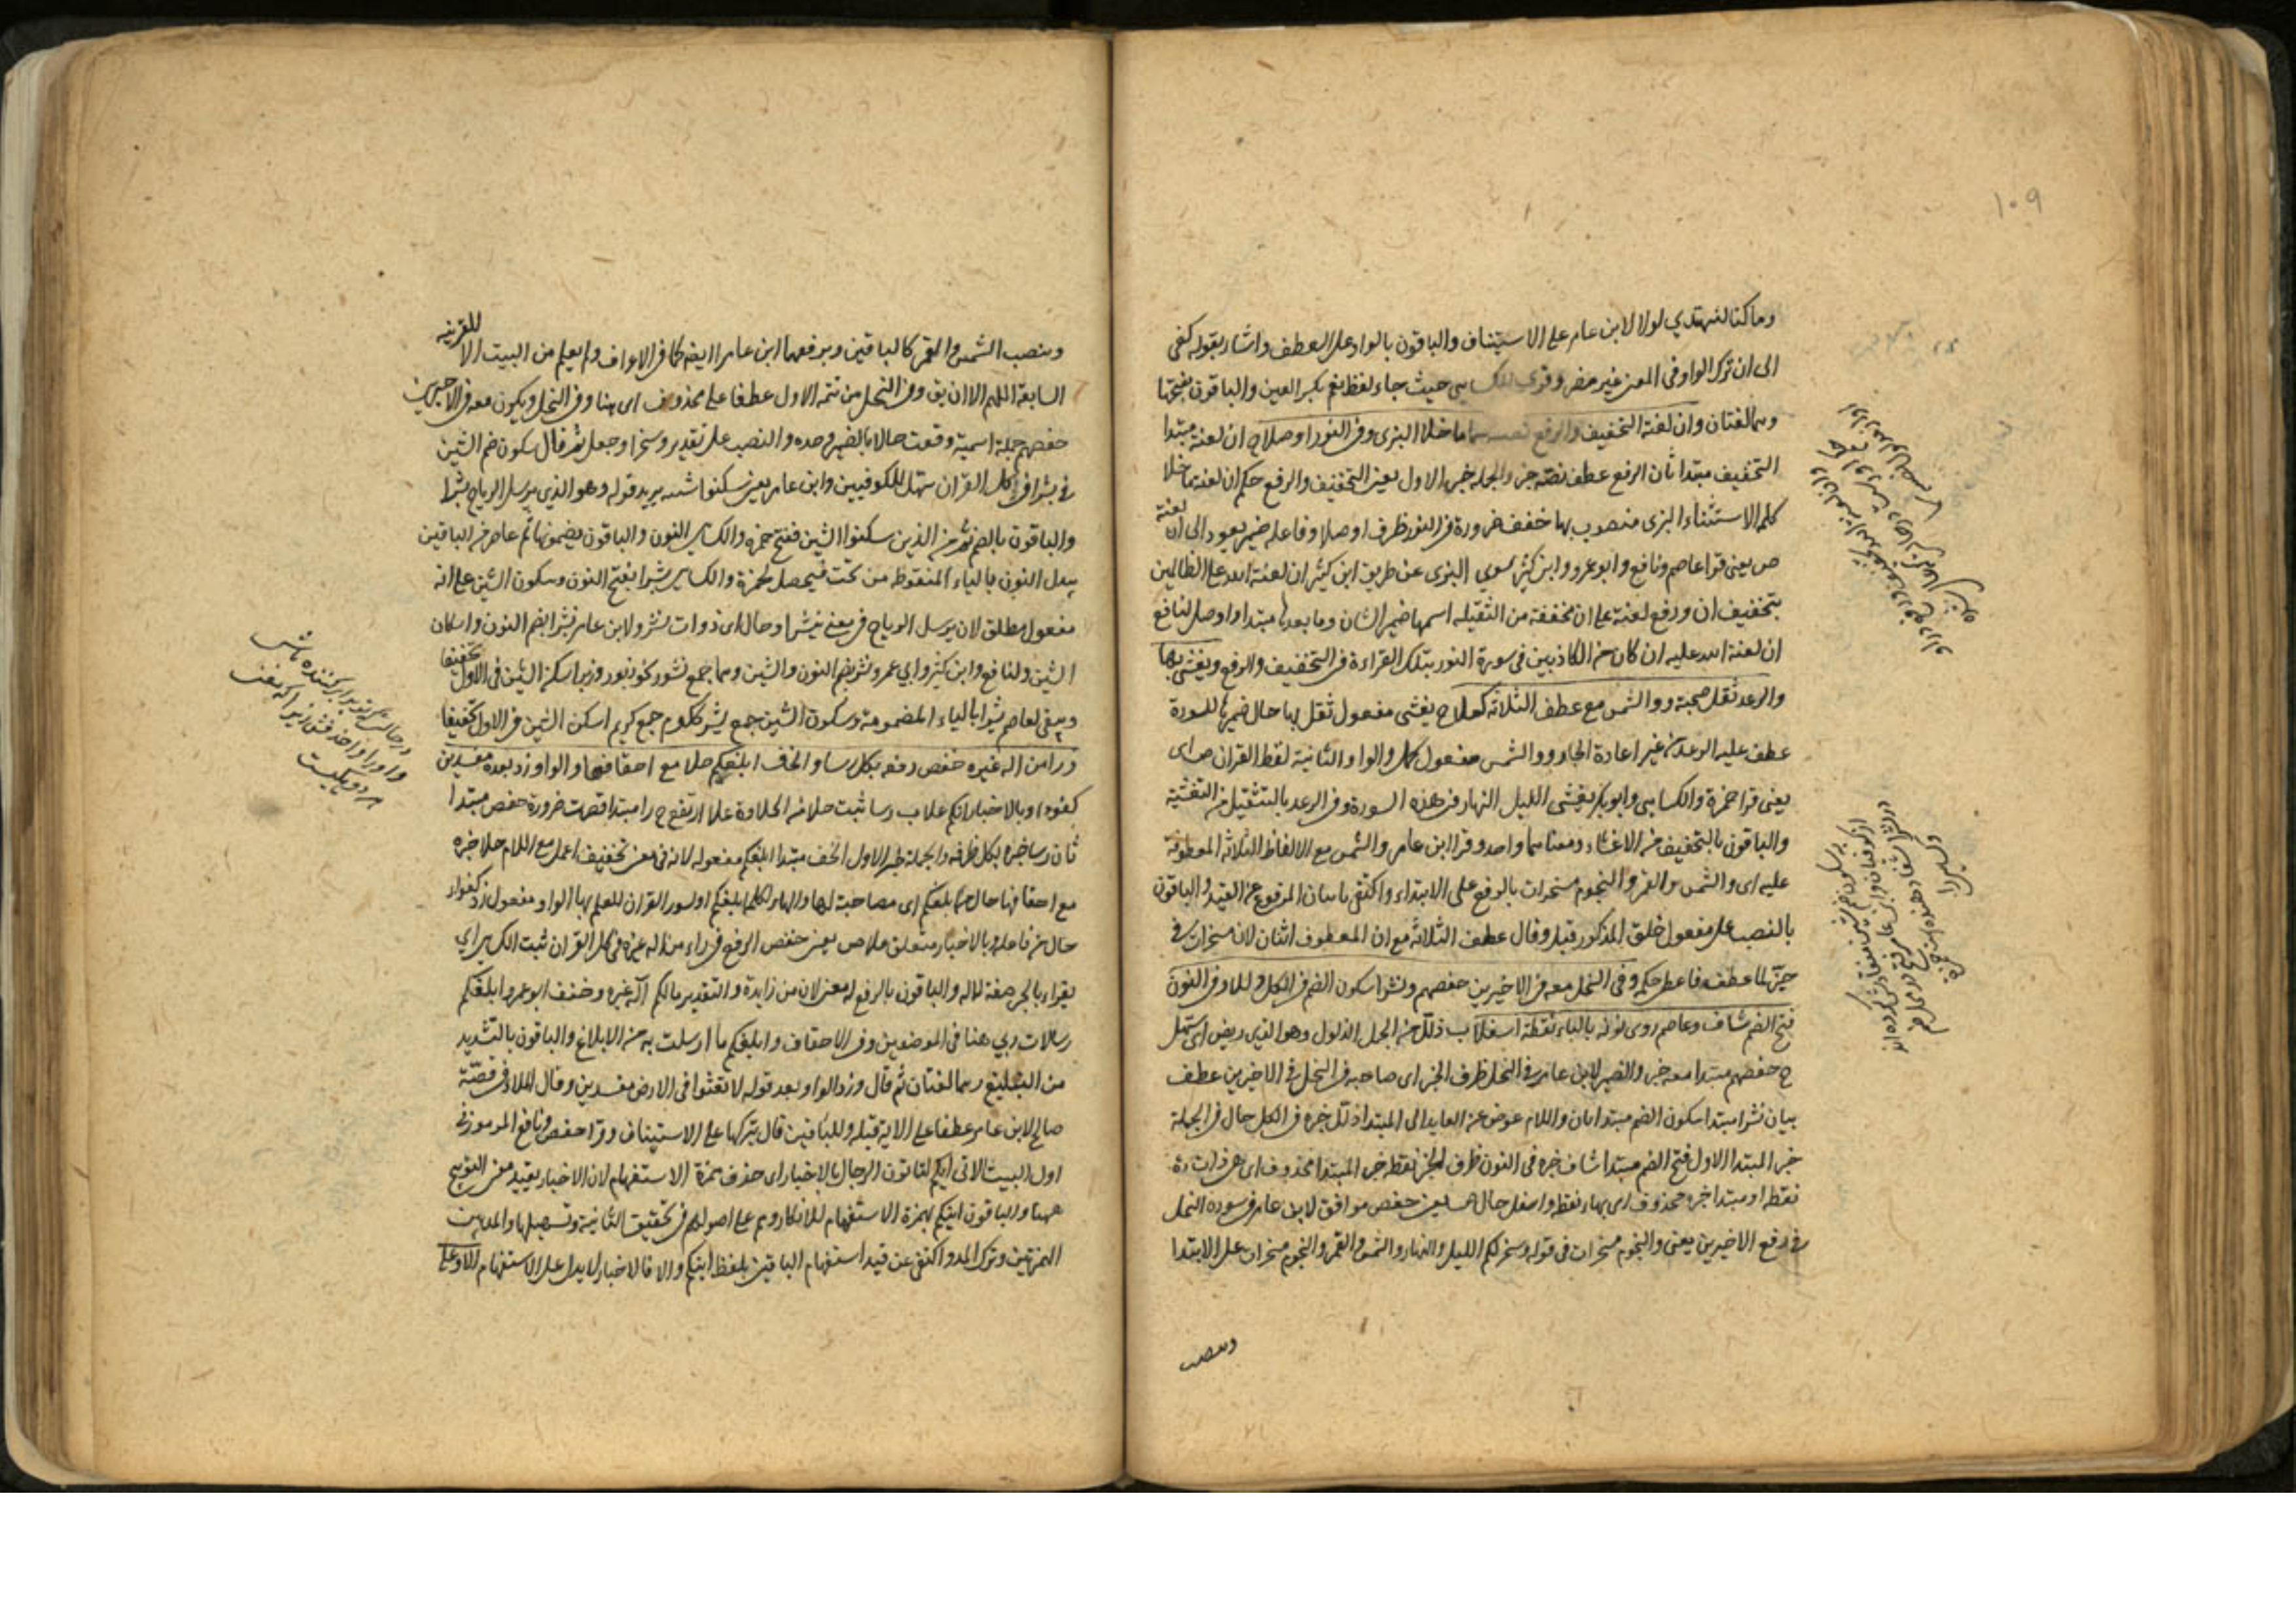 ١٠٩
وما كنا لنهتدي لولا لابن عامر على الاستيناف والباقون بالواو على العطف واشار بقوله كفى
الى ان ترك الواو في المعنى غير مضر وقرئ للكسايي حيث جاء لفظ نعم بكسر العين والباقون بفتحها
وهما لغتان وان لعنة التخفيف والرفع سما ما خلا البزى وفى النور اوصلا ح ان لعنة مبتدا
التخفيف مبتدا ثان الرفع عطف نصه خبر والجملة خبر الاول يعنى التخفيف والرفع حكم ان لعنة ما خلا
كلمة الاستثناء البزى منصوب بها خفف ضرورة فى النور ظرف اوصلا وفاعله ضمير يعود الى ان لعنة
ص يعنى قرا عاصم ونافع وابو عمرو وابن كثير سوي البزى عن طريق ابن كثير ان لعنة الله على الظالمين
بتخفيف ان ورفع لعنة على ان مخففة من الثقيلة اسمها ضمير الشان وما بعدها مبتدا واوصل لنافع
ان لعنة الله عليه ان كان من الكاذبين في سورة النور بتلك القراءة فى التخفيف والرفع ويغشى بها
والرعد ثقل صحبة ووالشمس مع عطف الثلاثة كملا ح يغشى مفعول ثقل بها حال ضميرها للسورة
عطف عليه الرعد من غير اعادة الجار ووالشمس مفعول كمل والواو الثانية لفظ القران ص اى
يعنى قرا حمزة والكسايي وابوبكر يغشى الليل النهار فى هذه السورة وفى الرعد بالتثقيل من التغشية
والباقون بالتخفيف من الاغشاء ومعناهما واحد وقرا ابن عامر والشمس مع الالفاظ الثلاثة المعطوفة
عليه اى والشمس والقمر والنجوم مسخرات بالرفع على الابتداء واكتفى باسان المرفوع عن القيد والباقون
بالنصب على مفعول خلق المذكور قبله وقال عطف الثلاثة مع ان المعطوف اثنان لان مسخرات فى
حيز لما عطف فاعطى حكمه وفى النحل معه فى الاخيرين حفصهم ونشرا سكون الضم فى الكل وللا وفى النون
فتح الضم شاف وعاصم روى نونه بالباء نقطة اسفلا ب ذلل من الجمل الذلول وهو الذى ريض اى سهل
ح حفصهم مبتدا معه خبر والضمير لابن عامر فى النحل ظرف الخبر اى صاحبه فى النحل فى الاخيرين عطف
بيان نشرا مبتدا سكون الضم مبتدا ثان واللام عوض عن العايد الى المبتدا ذلل خبره فى الكل حال فى الجملة
خبر المبتدا الاول فتح الضم مبتدا شاف خبره فى النون ظرف الخبر نقطة خبر المبتدا محذوف اى هى ذات
نقطة او مبتدا خبره محذوف اى بهاء نقطة واسفل حال ص يعنى حفص موافق لابن عامر فى سورة النحل
فى رفع الاخيرين يعنى والنجوم مسخرات فى قوله وسخر لكم الليل والنهار والشمس والقمر والنجوم مسخرات على الابتدا
وينصب
وينصب الشمس والقمر كالباقين وبرفعهما ابن عامر ايضا كما فى الاعراف ولم يعلم من البيت الا للقرينة
السابقة اللهم الا ان يق وفى النحل من تتمة الاول عطفا على محذوف اى هنا وفى النحل ويكون معه فى الاخيرين
حفصهم جملة اسمية وقعت حالا بالضمير وحده والنصب على تقدير وسخر او جعل ثم قال سكون ضم الشين
فى بشرا فى كل القران سهل للكوفيين وابن عامر يعنى سكنوا شينه يريد قوله وهو الذى يرسل الرياح بشرا
والباقون بالضم ثم من الذين سكنوا الشين ففتح حمزة والكسايي النون والباقون يضمونها ثم عاصم من الباقين
يبدل النون بالباء المنقوطة من تحت فيحصل لحمزة والكسايي نشرا بفتح النون وسكون الشين على انه
مفعول مطلق لان يرسل الرياح فى معنى ينشر او حال اى ذوات نشر ولابن عامر نشرا بضم النون واسكان
الشين ولنافع وابن كثير وابي عمرو نشرا بضم النون والشين وهما جمع نشور كزبور وزبر اسكن الشين فى الاول تخفيفا
وبقى لعاصم بشرا بالباء المضمومة وسكون الشين جمع بشير ككرم جمع كريم اسكن الشين فى الاول تخفيفا
ورا من اله غيره خفض رفعه بكل رسا والخف ابلغكم حلا مع احقافها والواو زد بعد مفسدين
كفوءا وبالاخبار انكم علا ب رسا ثبت حلا من الحلاوة علا ارتفع ح را مبتدا قصرت ضرورة خفض مبتدا
ثان رسا خبره بكل ظرفه والجملة خبر الاول الخف مبتدا ابلغكم مفعوله لانه فى معنى تخفيف اعمل مع اللام حلا خبره
مع احقافها حال من ابلغكم اى مصاحبة لها والهاء لكلمة ابلغكم او لسور القران للعلم بها الواو مفعول زد كفوءا
حال من فاعله وبالاخبار متعلق علا ص يعنى خفض الرفع فى راء من اله غيره فى كل القران ثبت الكسايي
بقراء بالجر صفة لاله والباقون بالرفع لمعنى لان من زايدة والتقدير مالكم اله غيره وخفف ابو عمرو ابلغكم
رسالات ربي هنا فى الموضعين وفى الاحقاف وابلغكم ما ارسلت به من الابلاغ والباقون بالتشديد
من التبليغ وهما لغتان ثم قال وزد الواو بعد قوله لا تعثوا فى الارض مفسدين وقال الملا فى قصة
صالح لابن عامر عطفا على الاية قبله وللباقين قال بتركها على الاستيناف وقرا حفص ونافع المرموز فى
اول البيت الاتى انكم لتاتون الرجال بالاخبار اى حذف همزة الاستفهام لان الاخبار يفيد معنى التوبيخ
ههنا والباقون اينكم بهمزة الاستفهام للانكار وهم على اصولهم فى تحقيق الثانية وتسهيلها والمد بين
الهمزتين وترك المد واكتفى عن قيد استفهام الباقين بلفظ اينكم والا فالاخبار لا يدل على الاستفهام الا وعلى